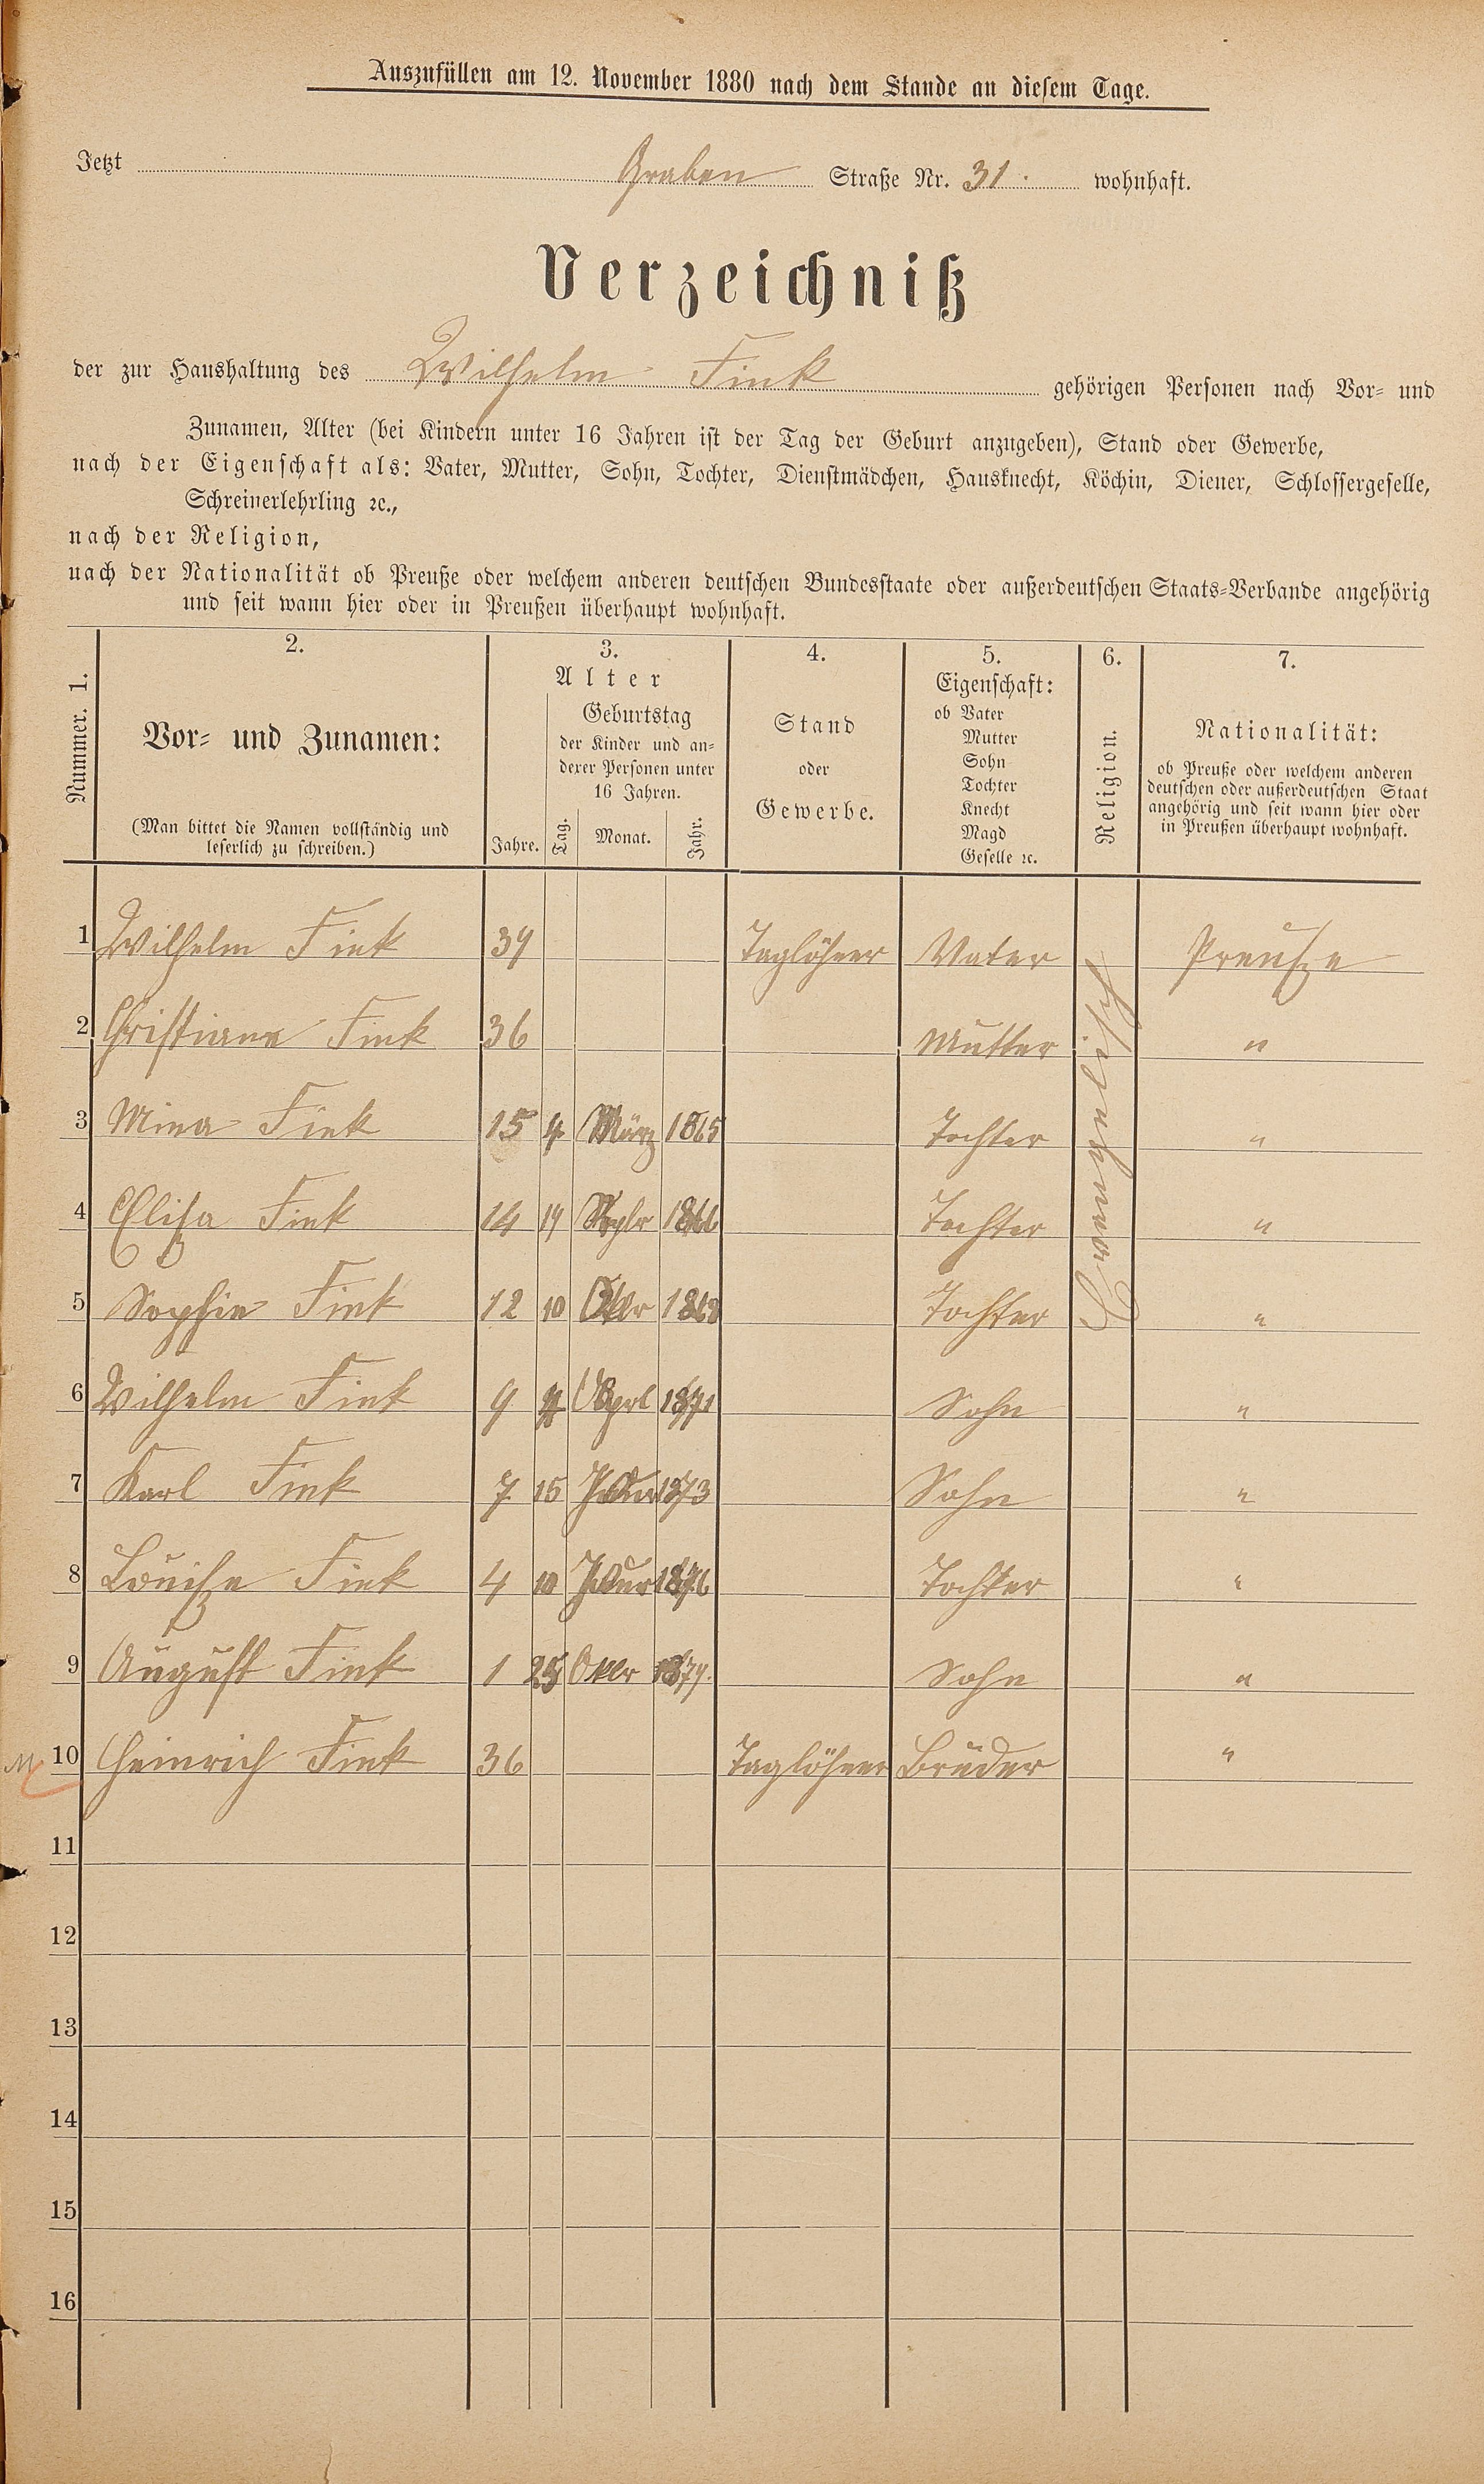 Auszufüllen am 12. November 1880 nach dem Stande an diesem Tage.
Jetzt Graben Straße Nr. 31. wohnhaft.
Verzeichniß
der zur Haushaltung des Wilhelm Fink gehörigen Personen nach Vor- und
Zunamen, Alter (bei Kindern unter 16 Jahren ist der Tag der Geburt anzugeben), Stand oder Gewerbe,
nach der Eigenschaft als: Vater, Mutter, Sohn, Tochter, Dienstmädchen, Hausknecht, Köchin, Diener, Schlossergeselle,
Schreinerlehrling ꝛc.,
nach der Religion,
nach der Nationalität ob Preuße oder welchem anderen deutschen Bundesstaate oder außerdeutschen Staats-Verbande angehörig
und seit wann hier oder in Preußen überhaupt wohnhaft.
Nummer. 1.
2.
Vor- und Zunamen:
(Man bittet die Namen vollständig und
leserlich zu schreiben.)
3.
Alter
Jahre.
Geburtstag
der Kinder und an-
derer Personen unter
16 Jahren.
Tag. Monat. Jahr.
4.
Stand
oder
Gewerbe.
5.
Eigenschaft:
ob Vater
Mutter
Sohn
Tochter
Knecht
Magd
Geselle ꝛc.
6.
Religion.
7.
Nationalität:
ob Preuße oder welchem anderen
deutschen oder außerdeutschen Staat
angehörig und seit wann hier oder
in Preußen überhaupt wohnhaft.
1 Wilhelm Fink Taglöhner Vater Preuße
2 Christiane Fink 36 Mutter "
Evangelisch
3 Mina Fink 15 4 März 1865 Tochter "
4 Elisa Fink 14 Tochter "
5 Sophie Fink 12 10 Tochter "
6 Wilhelm Fink 9 1871 Sohn "
7 Karl Fink 7 15 1873 Sohn "
8 Louise Fink 4 10 1876 Tochter "
9 August Fink 1 1879. Sohn "
10 Heinrich Fink 36 Taglöhner Bruder "
11
12
13
14
15
16